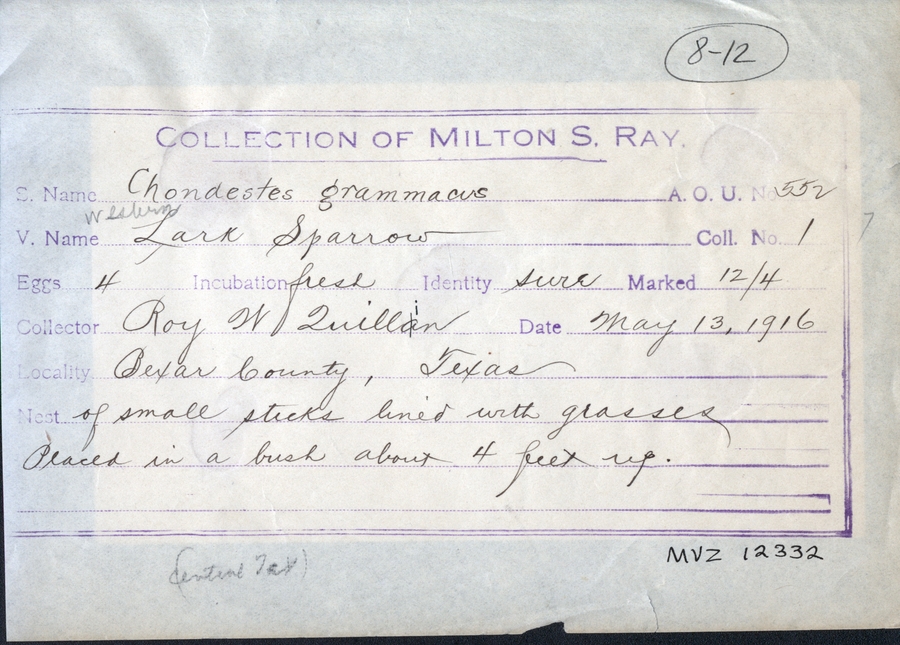 8-12
COLLECTION OF MILTON S. RAY.
S. Name Chondestes grammacus A. O. U. No. 552
Western
V. Name Lark Sparrow Coll. No. 1
Eggs 4 Incubation fresh Identity sure Marked 12/4
Collector Roy W Quillin Date May 13, 1916
Locality Bexar County, Texas
Nest of small sticks lined with grasses
Placed in a bush about 4 feet up.
MVZ 12332
(entire